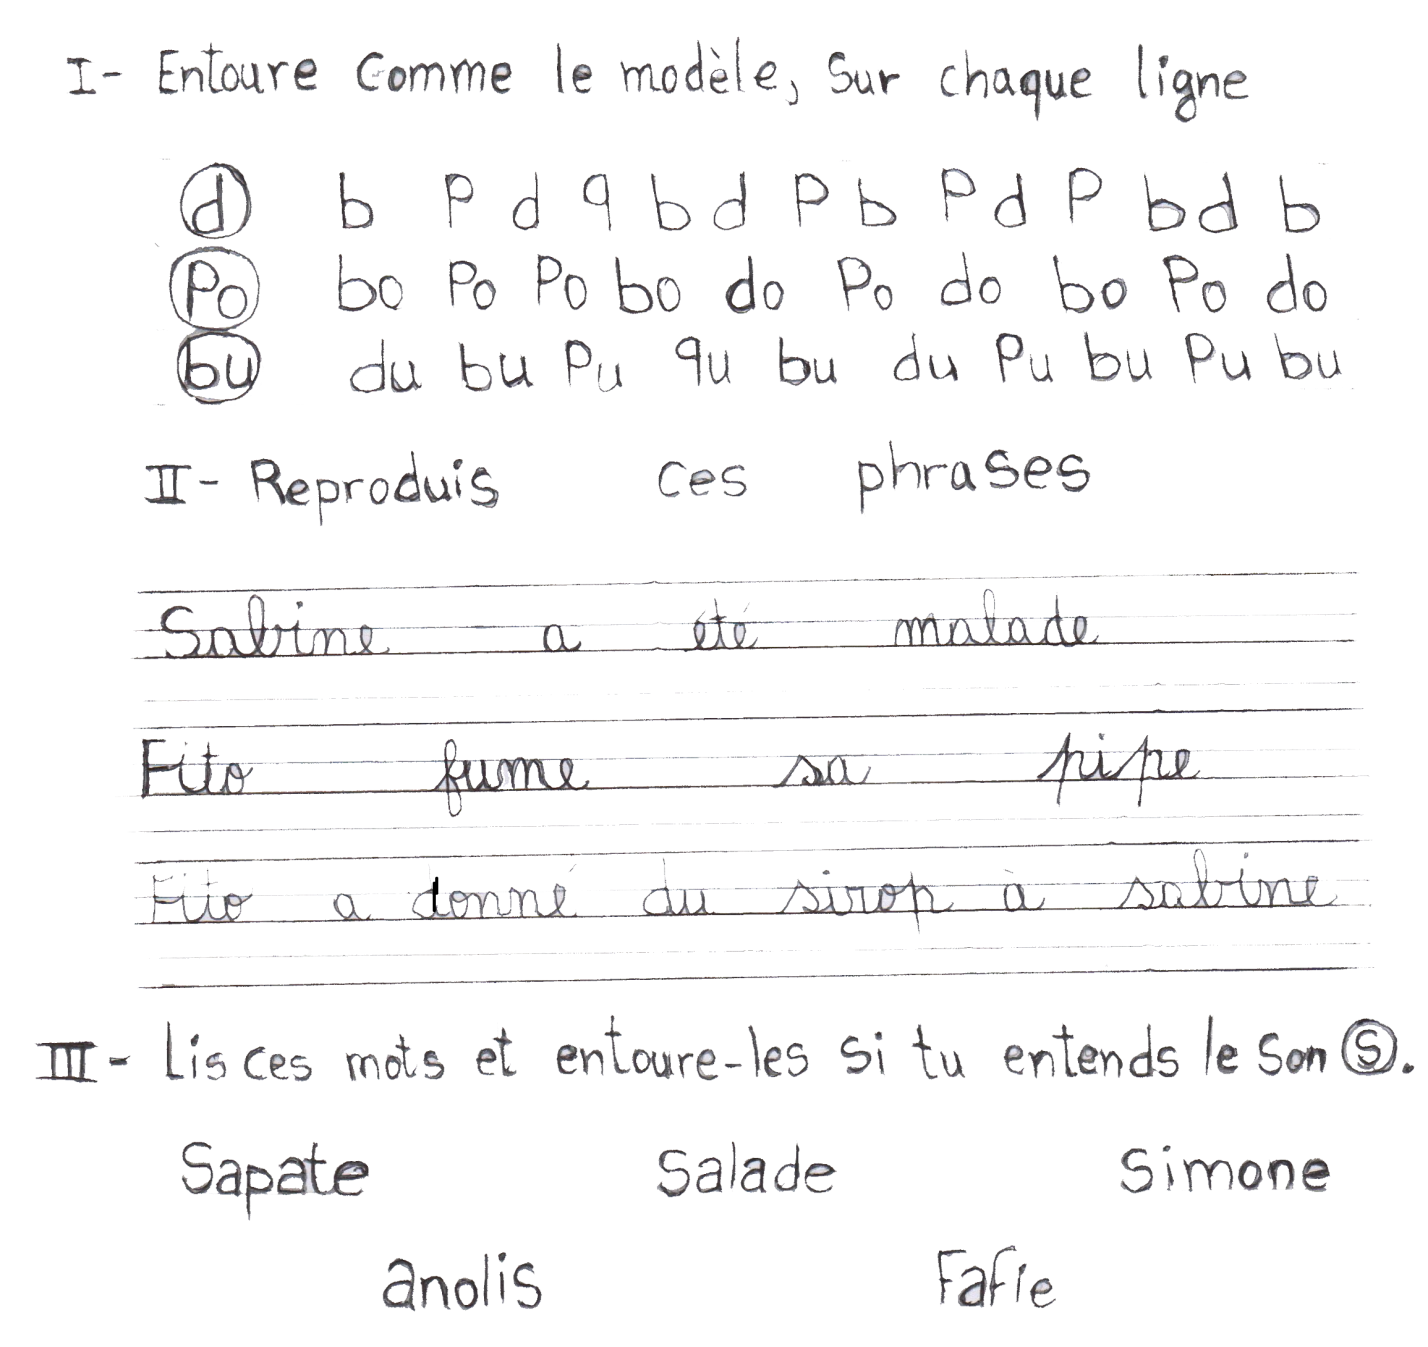 I- Entoure Comme le modèle, Sur chaque ligne
d b P d q b d P b P d P b d b
Po bo Po Po bo do Po do bo Po do
bu du bu Pu qu bu du Pu bu Pu bu
II- Reproduis ces phrases
Sabine a été malade
Fito fume sa pipe
Fito a donné du sirop à sabine
III- Lis ces mots et entoure-les si tu entends le Son S.
Sapate Salade Simone
anolis Fafie